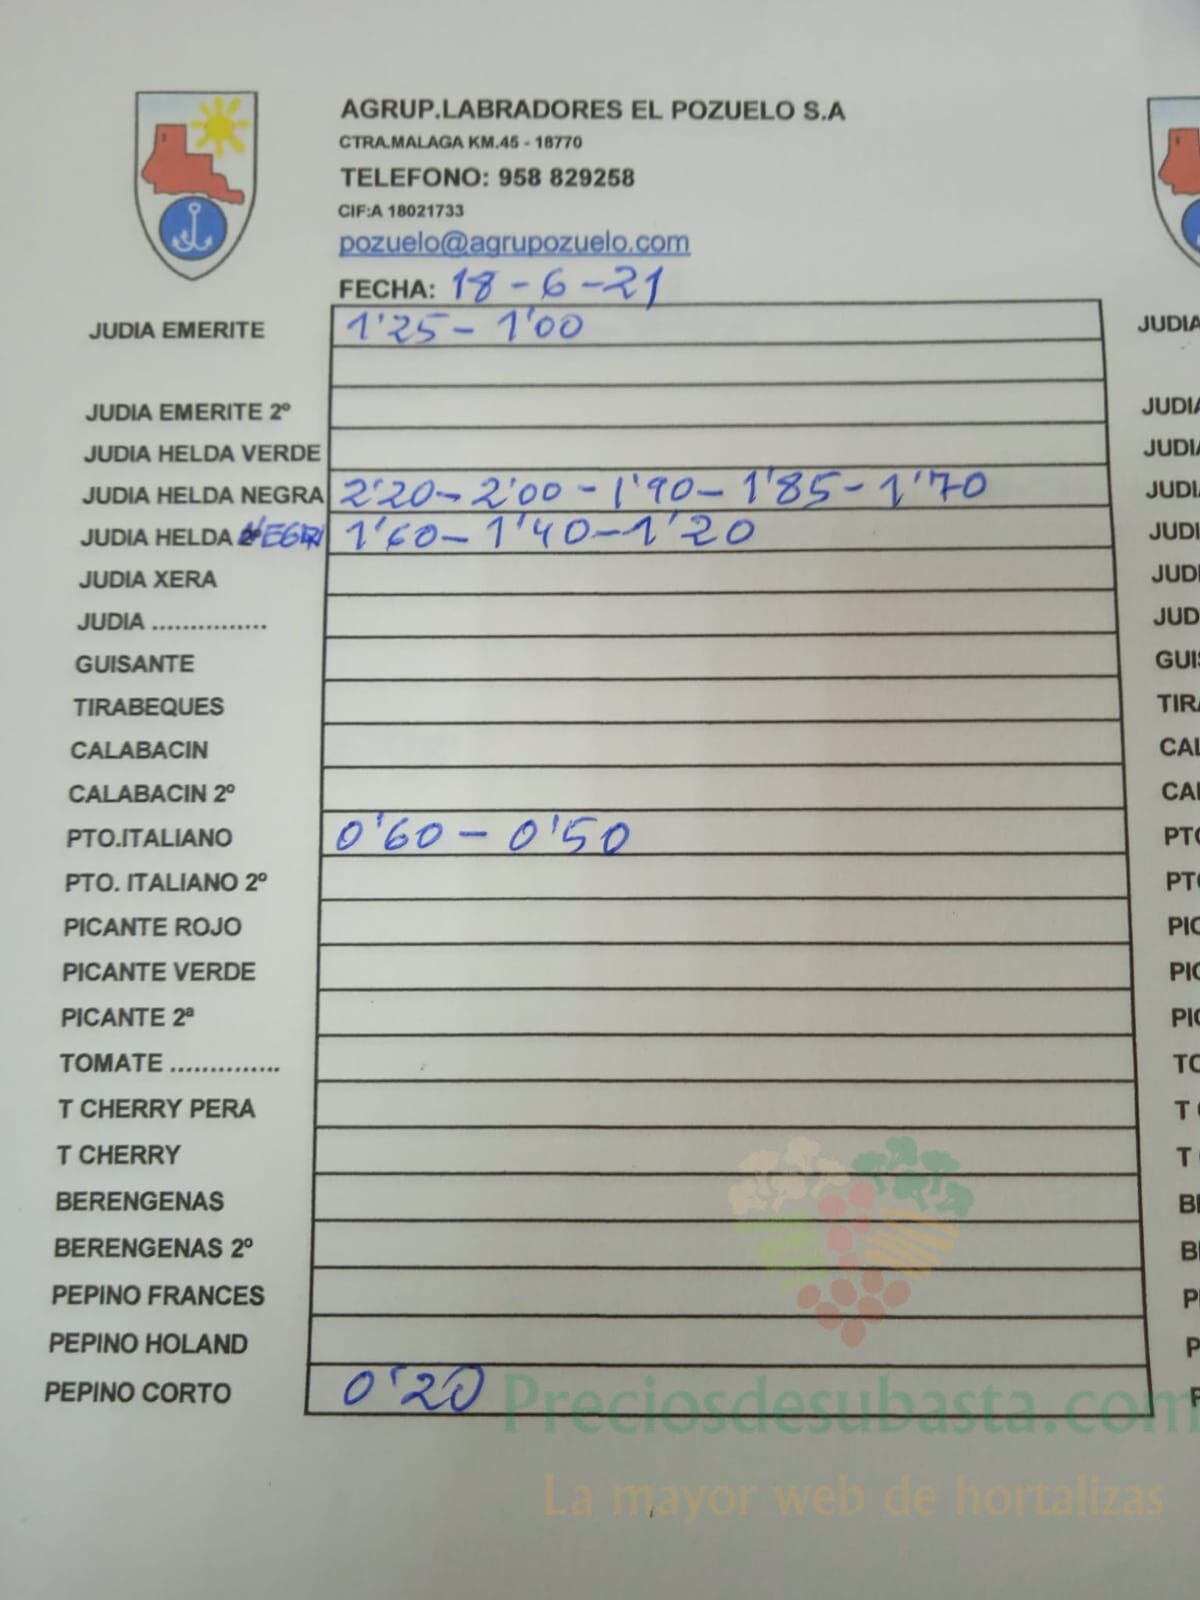 AGRUP.LABRADORES EL POZUELO S.A
CTRA.MALAGA KM.45 - 18770
TELEFONO: 958 829258
CIF:A 18021733
pozuelo@agrupozuelo.com
FECHA: 18-6-21
JUDIA EMERITE 1'25 - 1'00 JUDIA
JUDIA EMERITE 2º JUDIA
JUDIA HELDA VERDE JUDIA
JUDIA HELDA NEGRA 2'20 - 2'00 - 1'90 - 1'85 - 1'70 JUDI
JUDIA HELDA 1'60 - 1'40 - 1'20 JUDI
JUDIA XERA JUDI
JUDIA ............... JUD
GUISANTE GUIS
TIRABEQUES TIRA
CALABACIN CAL
CALABACIN 2º CAL
PTO.ITALIANO 0'60 - 0'50 PTO
PTO. ITALIANO 2º PTO
PICANTE ROJO PIC
PICANTE VERDE PIC
PICANTE 2ª PIC
TOMATE .............. TO
T CHERRY PERA T
T CHERRY T
BERENGENAS BE
BERENGENAS 2º BE
PEPINO FRANCES P
PEPINO HOLAND P
PEPINO CORTO 0'20 P
Preciosdesubasta.com
La mayor web de hortalizas